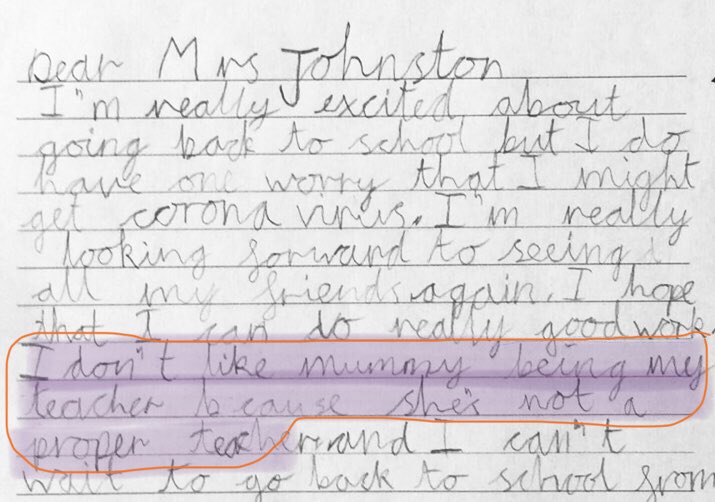 Dear Mrs Johnston
I"m really excited about
going back to school but I do
have one worry that I might
get corona virus. I"m really
looking forward to seeing
all my friends again. I hope
that I can do really good work.
I don"t like mummy being my
teacher because she's not a
proper teacher and I can"t
wait to go back to school from